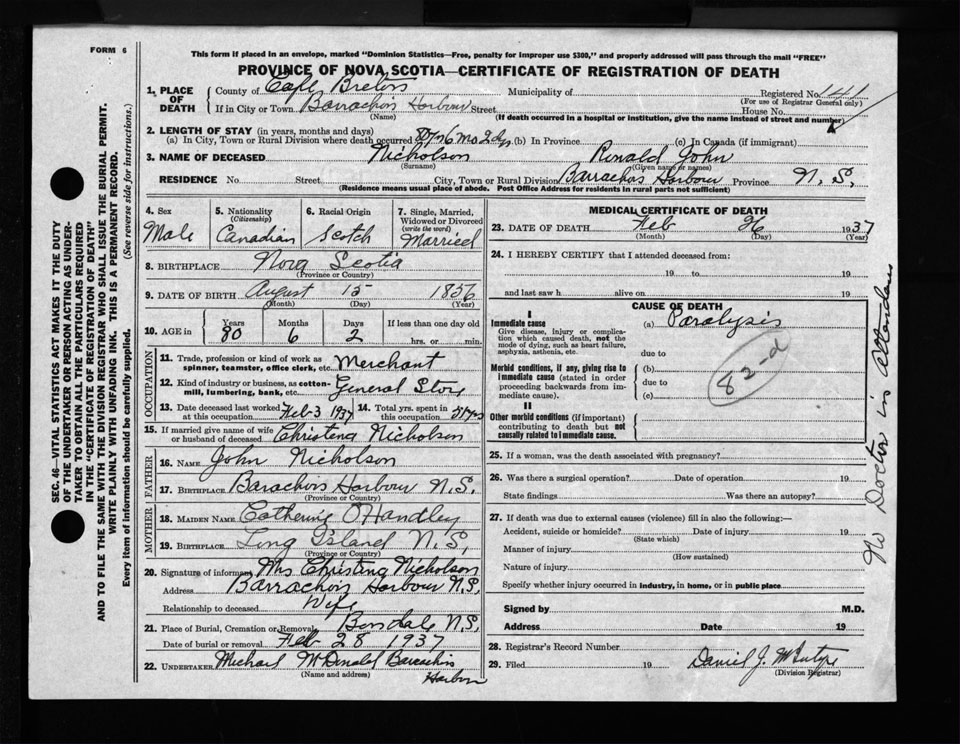 FORM 6
This form if placed in an envelope, marked "Dominion Statistics—Free, penalty for improper use $300," and properly addressed will pass through the mail "FREE"
PROVINCE OF NOVA SCOTIA—CERTIFICATE OF REGISTRATION OF DEATH
1. PLACE OF DEATH
County of Cape Breton Municipality of Registered No. 141
(For use of Registrar General only)
If in City or Town Barrachois Harbour Street House No.
(Name) (If death occurred in a hospital or institution, give the name instead of street and number)
2. LENGTH OF STAY (in years, months and days)
(a) In City, Town or Rural Division where death occurred 80 yrs 6 mo 2 dys (b) In Province (c) In Canada (if immigrant)
3. NAME OF DECEASED Nicholson Ronald John
(Surname) (Given name or names)
RESIDENCE No. Street City, Town or Rural Division Barrachois Harbour Province N.S.
(Residence means usual place of abode. Post Office Address for residents in rural parts not sufficient)
4. Sex
Male
5. Nationality
(Citizenship)
Canadian
6. Racial Origin
Scotch
7. Single, Married, Widowed or Divorced
(write the word)
Married
8. BIRTHPLACE Nova Scotia
(Province or Country)
9. DATE OF BIRTH August 15 1856
(Month) (Day) (Year)
10. AGE in
Years Months Days If less than one day old
80 6 2 hrs. or min.
OCCUPATION
11. Trade, profession or kind of work as spinner, teamster, office clerk, etc. Merchant
12. Kind of industry or business, as cotton-mill, lumbering, bank, etc. General Store
13. Date deceased last worked at this occupation Feb 3 1937
14. Total yrs. spent in this occupation
15. If married give name of wife or husband of deceased Christena Nicholson
FATHER
16. NAME John Nicholson
17. BIRTHPLACE Barachois Harbour N.S.
(Province or Country)
MOTHER
18. MAIDEN NAME Catherine O'Handley
19. BIRTHPLACE Long Island N.S.
(Province or Country)
20. Signature of informant Mrs Christina Nicholson
Address Barrachois Harbour N.S.
Relationship to deceased Wife
21. Place of Burial, Cremation or Removal N.S.
Date of burial or removal Feb 28 1937
22. UNDERTAKER Michael McDonald Barrachois Harbour
(Name and address)
MEDICAL CERTIFICATE OF DEATH
23. DATE OF DEATH Feb 26 1937
(Month) (Day) (Year)
24. I HEREBY CERTIFY that I attended deceased from:
19 to 19
and last saw h alive on 19
CAUSE OF DEATH
I
Immediate cause
Give disease, injury or complication which caused death, not the mode of dying, such as heart failure, asphyxia, asthenia, etc.
(a) Paralysis
due to
Morbid conditions, if any, giving rise to immediate cause (stated in order proceeding backwards from immediate cause).
(b)
due to
(c)
82-d
II
Other morbid conditions (if important) contributing to death but not causally related to immediate cause.
25. If a woman, was the death associated with pregnancy?
26. Was there a surgical operation? Date of operation 19
State findings Was there an autopsy?
27. If death was due to external causes (violence) fill in also the following:—
Accident, suicide or homicide? Date of injury 19
(State which)
Manner of injury
(How sustained)
Nature of injury
Specify whether injury occurred in industry, in home, or in public place
Signed by M.D.
Address Date 19
28. Registrar's Record Number
29. Filed 19 Daniel J. McIntyre
(Division Registrar)
No Doctor in attendance
SEC. 46—VITAL STATISTICS ACT MAKES IT THE DUTY
OF THE UNDERTAKER OR PERSON ACTING AS UNDER-
TAKER TO OBTAIN ALL THE PARTICULARS REQUIRED
IN THE "CERTIFICATE OF REGISTRATION OF DEATH"
AND TO FILE THE SAME WITH THE DIVISION REGISTRAR WHO SHALL ISSUE THE BURIAL PERMIT.
WRITE PLAINLY WITH UNFADING INK. THIS IS A PERMANENT RECORD.
Every item of information should be carefully supplied. (See reverse side for instructions.)